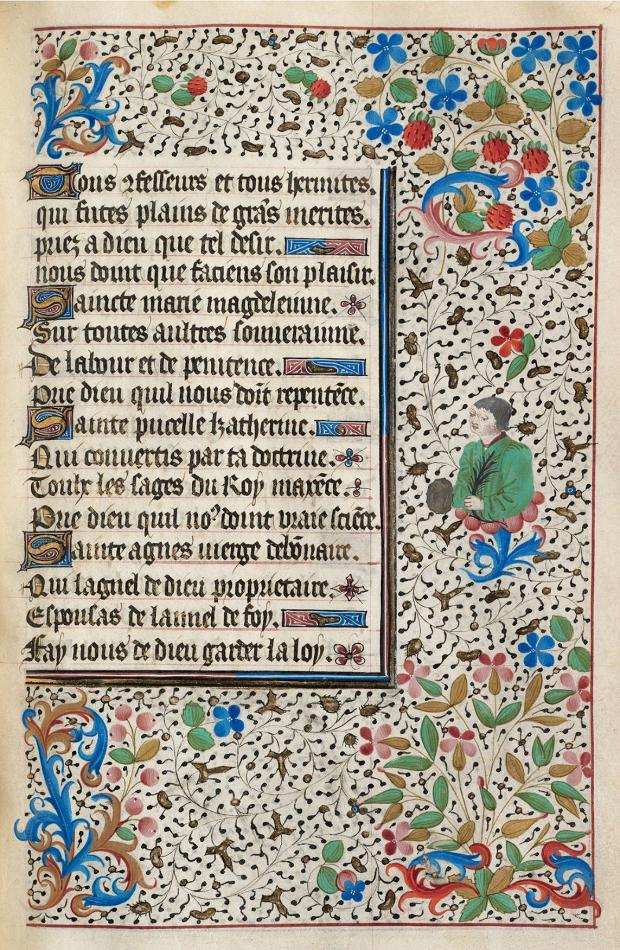 Tous 9fesseurs et tous hermites.
qui futes plains de gras merites.
priez a dieu que tel desir.
nous doint que faciens son plaisir.
Saincte marie magdelenne.
Sur toutes aultres souueraine.
De labour et de penitence.
Prie dieu quil nous doit repentēce.
Sainte pucelle katherine.
Qui conuertis par ta doctrine.
Toulx les sages du Roy maxēce.
Prie dieu quil no9 doint vraie sciēce.
Sainte agnes vierge debōnaire.
Qui laguel de dieu proprietaire.
Espousas de lannel de foy.
Fay nous de dieu garder la loy.